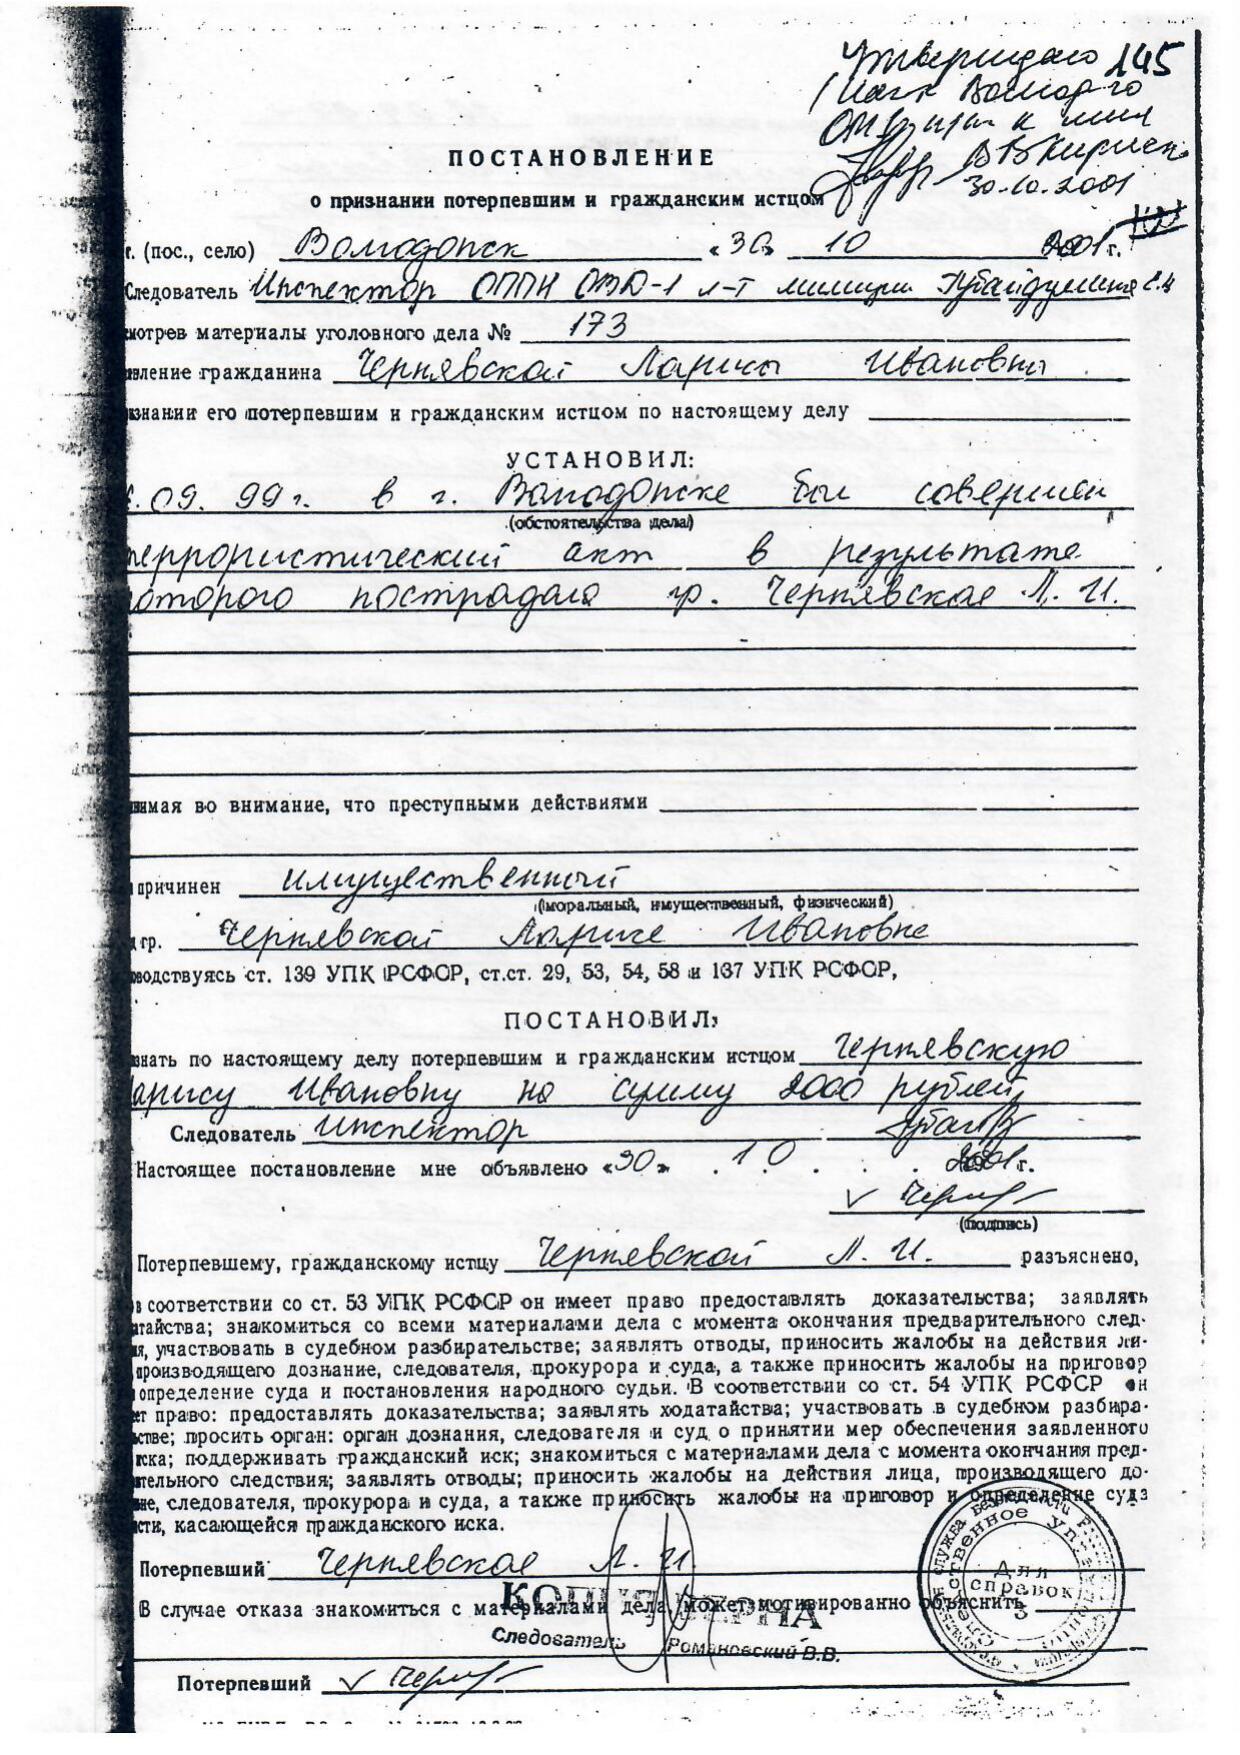 Утверждаю 145
30.10.2001
ПОСТАНОВЛЕНИЕ
о признании потерпевшим и гражданским истцом
г. (пос., село) Волгодонск «30» 10 2001 г.
Следователь Инспектор ОППН ОВД-1 л-т милиции
мотрев материалы уголовного дела № 173
вление гражданина Чернявской Ларисы Ивановны
изнании его потерпевшим и гражданским истцом по настоящему делу
УСТАНОВИЛ:
.09.99г. в г. Волгодонске был совершен
(обстоятельства дела)
террористический акт в результате
которого пострадала гр. Чернявская Л. И.
нимая во внимание, что преступными действиями
причинен имущественный
(моральный, имущественный, физический)
гр. Чернявской Ларисе Ивановне
водствуясь ст. 139 УПК РСФСР, ст.ст. 29, 53, 54, 58 и 137 УПК РСФСР,
ПОСТАНОВИЛ:
знать по настоящему делу потерпевшим и гражданским истцом Чернявскую
Ларису Ивановну на сумму 2000 рублей
Следователь Инспектор
Настоящее постановление мне объявлено «30» 10 2001 г.
(подпись)
Потерпевшему, гражданскому истцу Чернявской Л. И. разъяснено,
в соответствии со ст. 53 УПК РСФСР он имеет право предоставлять доказательства; заявлять
тайства; знакомиться со всеми материалами дела с момента окончания предварительного след-
я, участвовать в судебном разбирательстве; заявлять отводы, приносить жалобы на действия ли-
производящего дознание, следователя, прокурора и суда, а также приносить жалобы на приговор
определение суда и постановления народного судьи. В соответствии со ст. 54 УПК РСФСР он
ет право: предоставлять доказательства; заявлять ходатайства; участвовать в судебном разбира-
стве; просить орган: орган дознания, следователя и суд о принятии мер обеспечения заявленного
иска; поддерживать гражданский иск; знакомиться с материалами дела с момента окончания пред-
тельного следствия; заявлять отводы; приносить жалобы на действия лица, производящего до-
ние, следователя, прокурора и суда, а также приносить жалобы на приговор и определение суда
сти, касающейся гражданского иска.
Потерпевший Чернявская Л. И.
КОПИЯ ВЕРНА
В случае отказа знакомиться с материалами дела, может мотивированно объяснить
Следователь Романовский В.В.
Для
справок
3
Потерпевший